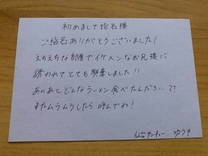 初めまして指名様
ご指名ありがとうございました!
えちえちな部屋でイケメンなお兄様に
誘われてとても興奮しました!!
あのあとどんなラーメン食べたんだろ...?
またムラムラしたら呼んでね!
ゆうき